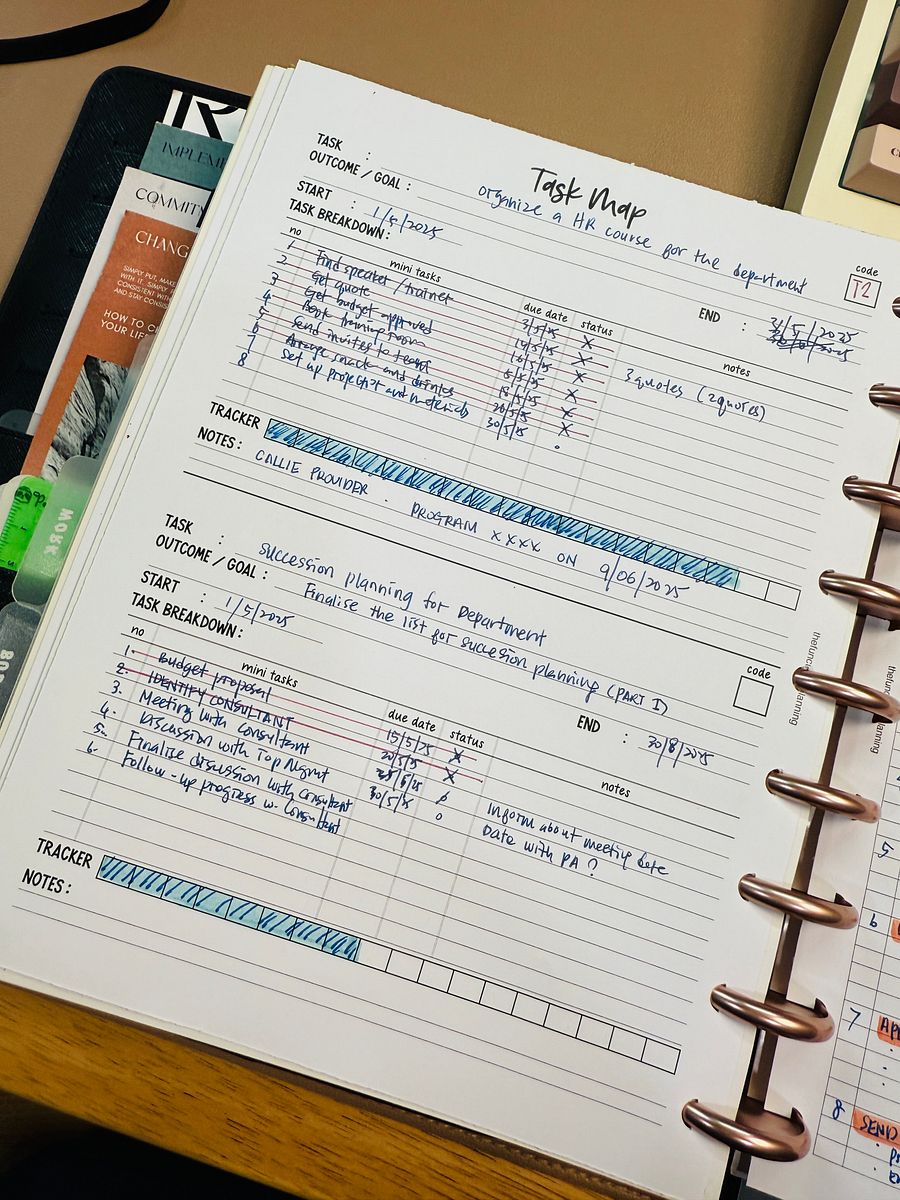 IMPLEM
COMMIT
CHANG
SIMPLY PUT, MAKE
WITH IT. SIMPLY
CONSISTENT WITH
AND STAY CONSIS
HOW TO C
YOUR LIFE
WORK
Task Map
TASK :
OUTCOME / GOAL : organize a HR course for the department
START : 1/5/2025
END : 31/5/2025
code T2
TASK BREAKDOWN:
no mini tasks due date status notes
1 Find speaker/trainer 3/5/25 X
2 Get quote X 3 quotes (2 quotes)
3 Get budget approved X
4 Book training room X
5 Send invites to team X
6 Arrange snack and drinks X
7 Set up projector and materials 30/5/25
8
TRACKER
NOTES: CALLIE PROVIDER. PROGRAM XXXX ON 9/06/2025
TASK : succession planning for Department
OUTCOME / GOAL : Finalise the list for succession planning (PART I)
START : 1/5/2025
END : 30/8/2025
code
TASK BREAKDOWN:
no mini tasks due date status notes
1. Budget proposal 15/5/25 X
2. IDENTIFY CONSULTANT 20/5/25 X
3. Meeting with consultant Inform about meeting date
4. Discussion with Top Mgmt 30/5/25 Date with PA ?
5. Finalise discussion with consultant
6. Follow-up progress w. consultant
TRACKER
NOTES:
5
6
7
8 SEND